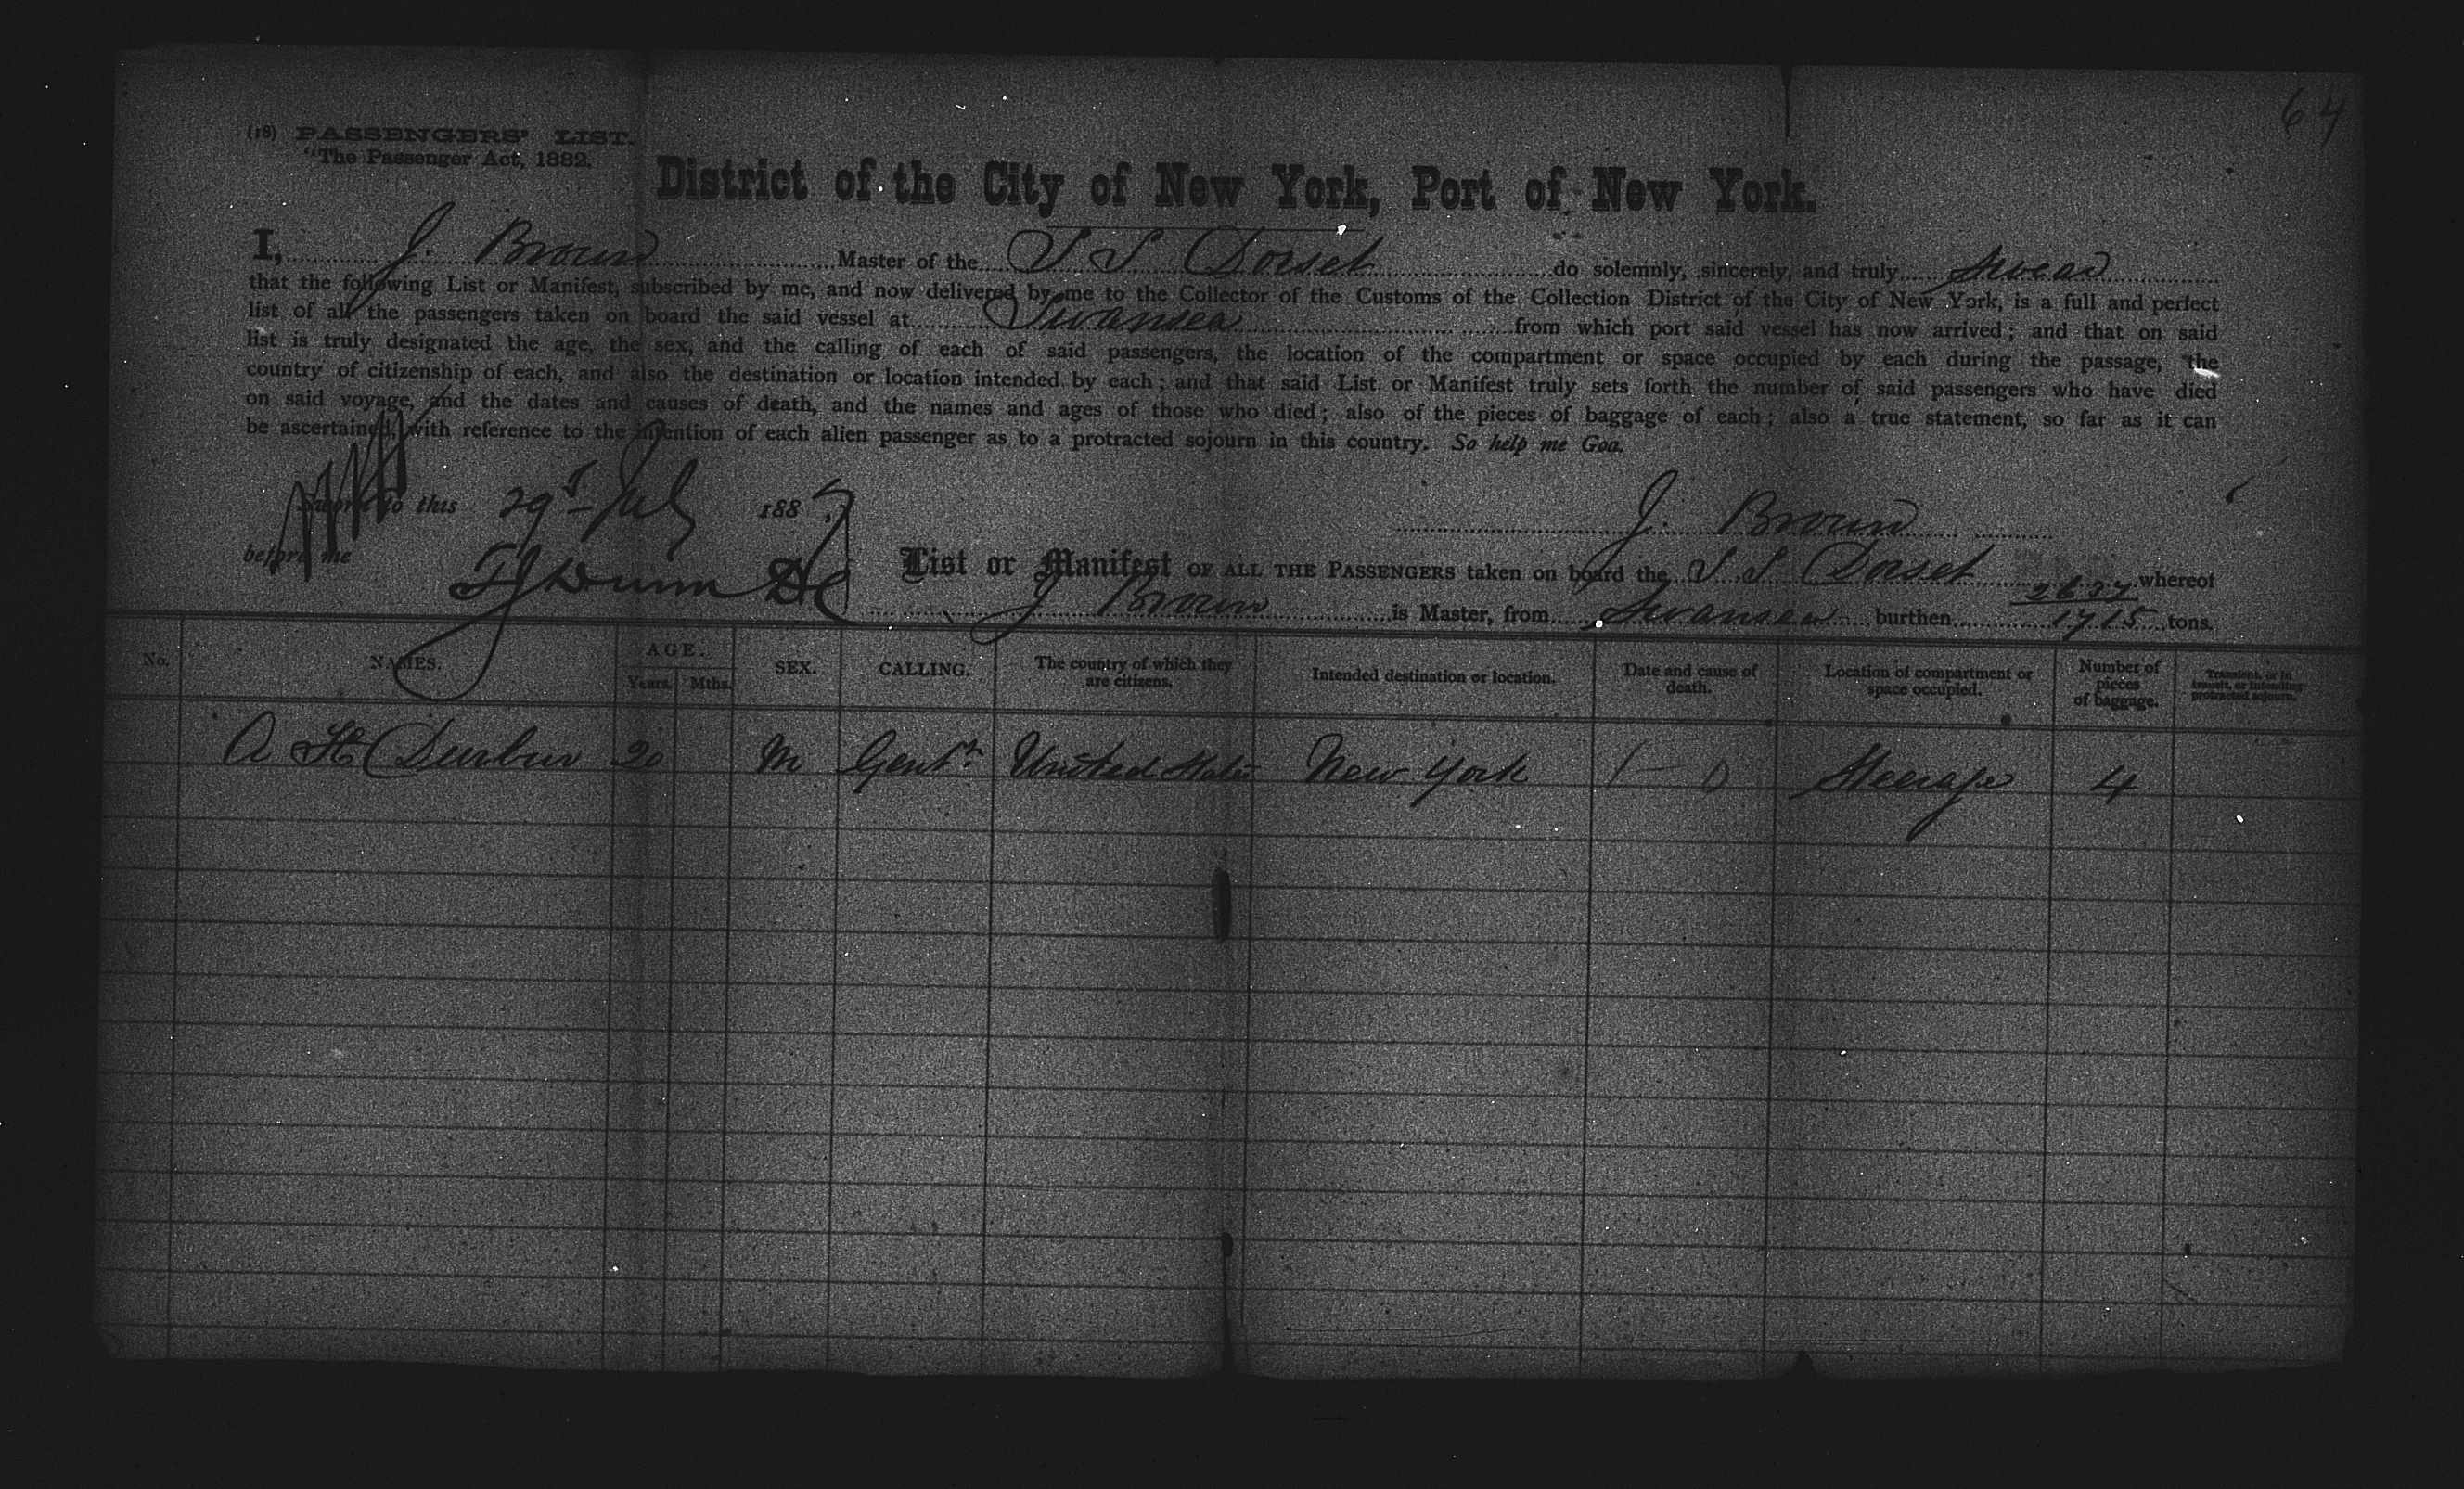 64
(18) PASSENGERS' LIST.
"The Passenger Act, 1882.
District of the City of New York, Port of New York.
I, J. Brown Master of the S S Dorset do solemnly, sincerely, and truly swear
that the following List or Manifest, subscribed by me, and now delivered by me to the Collector of the Customs of the Collection District of the City of New York, is a full and perfect
list of all the passengers taken on board the said vessel at Swansea from which port said vessel has now arrived; and that on said
list is truly designated the age, the sex, and the calling of each of said passengers, the location of the compartment or space occupied by each during the passage, the
country of citizenship of each, and also the destination or location intended by each; and that said List or Manifest truly sets forth the number of said passengers who have died
on said voyage, and the dates and causes of death, and the names and ages of those who died; also of the pieces of baggage of each; also a true statement, so far as it can
be ascertained, with reference to the intention of each alien passenger as to a protracted sojourn in this country. So help me God.
Sworn to this 29 July 1887
J. Brown
before me
List or Manifest OF ALL THE PASSENGERS taken on board the S S Dorset whereof
2637
J Brown is Master, from Swansea burthen 1715 tons.
No. NAMES. AGE. Years. Mths. SEX. CALLING. The country of which they are citizens. Intended destination or location. Date and cause of death. Location of compartment or space occupied. Number of pieces of baggage. Transient, or in transit, or intending protracted sojourn.
A 20 M Gentn United States New York Steerage 4